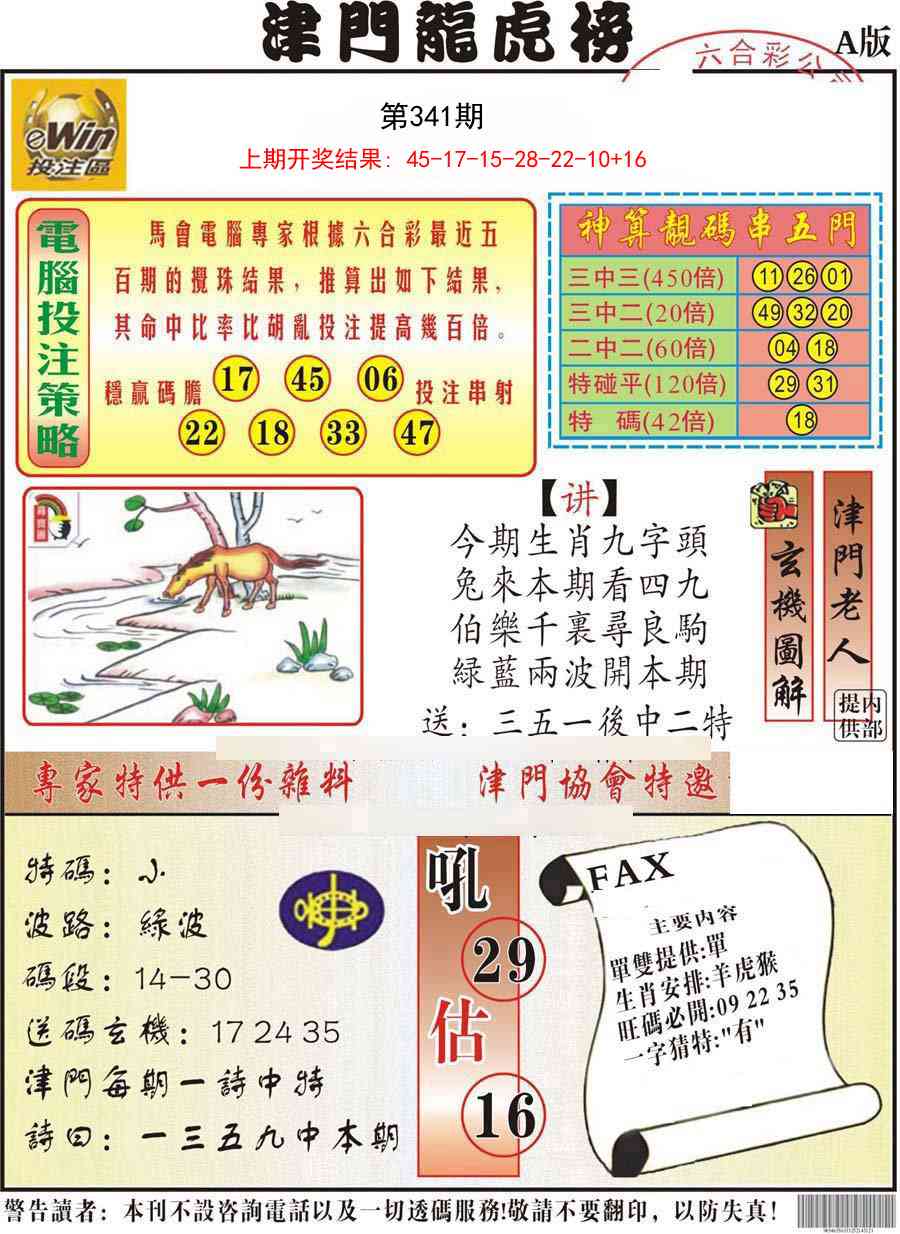 津門龍虎榜
A版
六合彩公司
第341期
上期开奖结果：45-17-15-28-22-10+16
eWin
投注區
電腦投注策略
馬會電腦專家根據六合彩最近五
百期的攪珠結果，推算出如下結果，
其命中比率比胡亂投注提高幾百倍。
穩贏碼膽 17 45 06 投注串射
22 18 33 47
神算靚碼串五門
三中三(450倍) 11 26 01
三中二(20倍) 49 32 20
二中二(60倍) 04 18
特碰平(120倍) 29 31
特　碼(42倍) 18
【讲】
今期生肖九字頭
兔來本期看四九
伯樂千裏尋良駒
綠藍兩波開本期
送：三五一後中二特
玄機圖解
津門老人
内部提供
專家特供一份雜料
津門協會特邀
特碼：小
波路：綠波
碼段：14-30
送碼玄機：17 24 35
津門每期一詩中特
詩曰：一三五九中本期
吼
29
估
16
FAX
主要内容
單雙提供:單
生肖安排:羊虎猴
旺碼必開:09 22 35
一字猜特:"有"
警告讀者：本刊不設咨詢電話以及一切透碼服務!敬請不要翻印，以防失真!